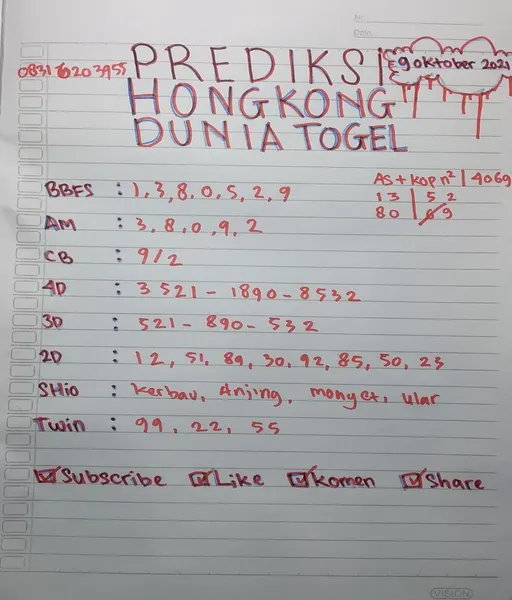 No.
Date.
0831 6203955
PREDIKSI
9 oktober 2021
HONGKONG
DUNIA TOGEL
AS + kop n² | 4069
13 | 52
80 | 69
BBFS : 1, 3, 8, 0, 5, 2, 9
AM : 3, 8, 0, 9, 2
CB : 9/2
4D : 3521 - 1890 - 8532
3D : 521 - 890 - 532
2D : 12, 51, 89, 30, 92, 85, 50, 23
SHio : kerbau, Anjing, monyet, ular
Twin : 99, 22, 55
Subscribe Like komen Share
VISION